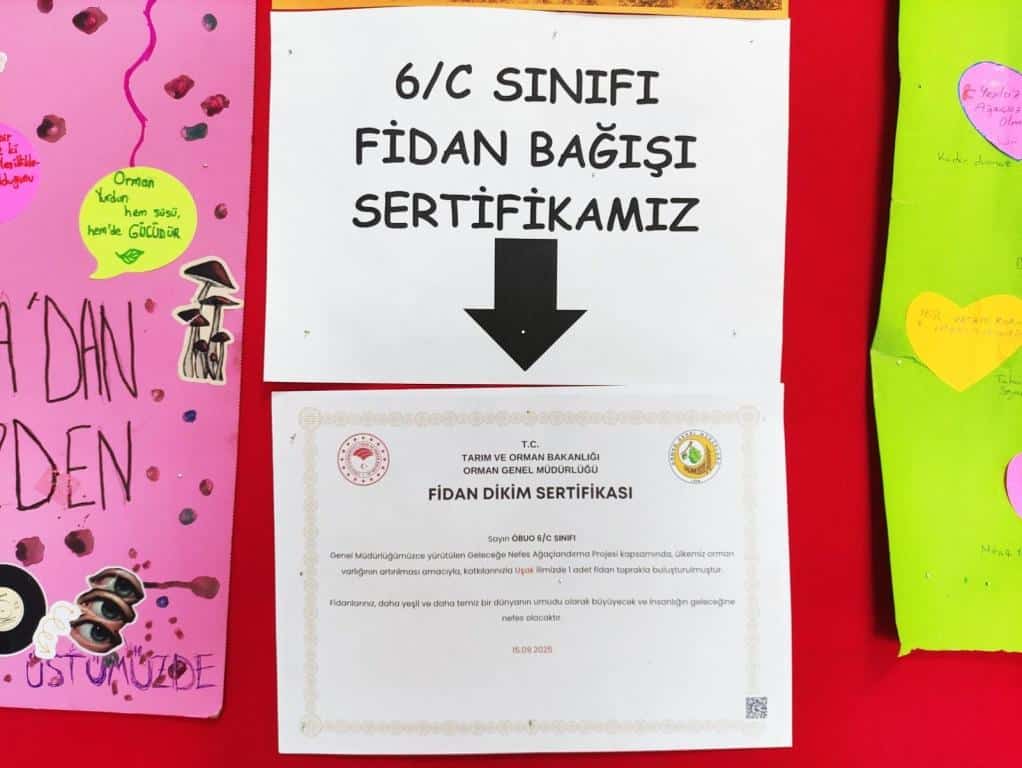 6/C SINIFI
FİDAN BAĞIŞI
SERTİFİKAMIZ
T.C.
TARIM VE ORMAN BAKANLIĞI
ORMAN GENEL MÜDÜRLÜĞÜ
FİDAN DİKİM SERTİFİKASI
Sayın ÖBUO 6/C SINIFI
Genel Müdürlüğümüzce yürütülen Geleceğe Nefes Ağaçlandırma Projesi kapsamında, ülkemiz orman
varlığının artırılması amacıyla, katkılarınızla Uşak ilimizde 1 adet fidan toprakla buluşturulmuştur.
Fidanlarınız, daha yeşil ve daha temiz bir dünyanın umudu olarak büyüyecek ve insanlığın geleceğine
nefes olacaktır.
15.09.2025
Orman
Yurdun
hem süsü,
hem'de GÜCÜDÜR
'DAN
DEN
ÜSTÜMÜZDE